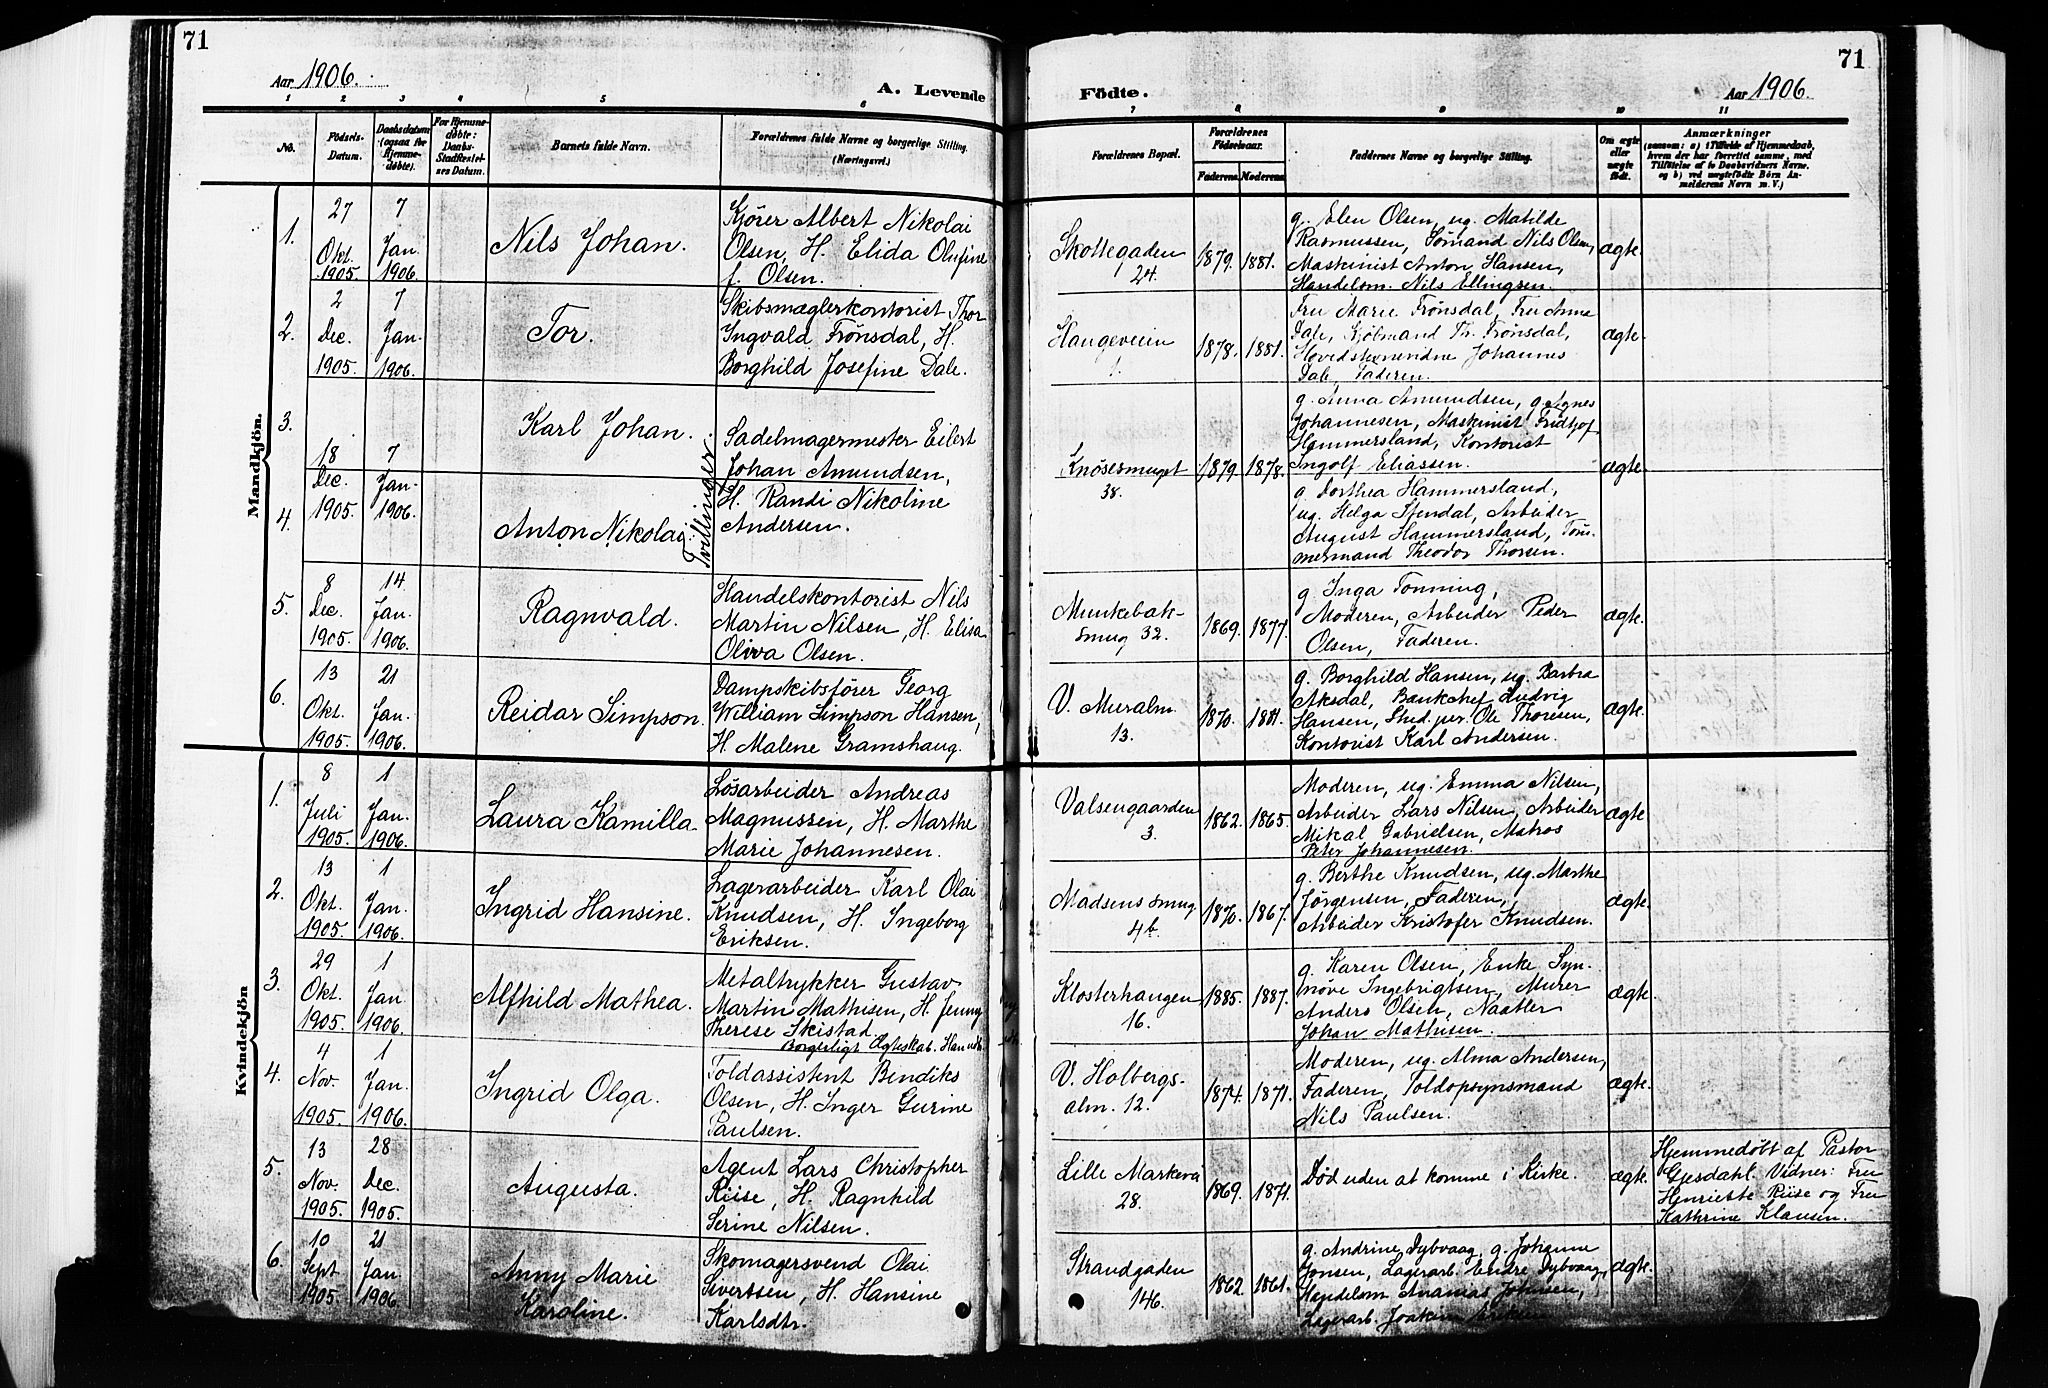 71
71
Aar 1906.
A. Levende
Födte.
Aar 1906.
1 2 3 4 5 6
7 8 9 10 11
No.
Födsels-
Datum.
Daabsdatum
(ogsaa for
Hjemme-
döbte).
For Hjemme-
döbte:
Daabs-
Stadfæstel-
ses Datum.
Barnets fulde Navn.
Forældrenes fulde Navne og borgerlige Stilling.
(Næringsvei.)
Forældrenes Bopæl.
Forældrenes
Födselsaar.
Faderens. Moderens.
Faddernes Navne og borgerlige Stilling.
Om ægte
eller
uægte
födt.
Anmærkninger
(saasom: a) i Tilfælde af Hjemmedaab,
hvem der har forrettet samme, med
Tilföielse af to Daabsvidners Navne.
og b) ved uægtefödte Börn An-
melderens Navn m. V.)
Mandkjön.
1.
27
Okt.
1905.
7
Jan.
1906.
Nils Johan.
Kjører Albert Nikolai
Olsen, H. Elida Olufine
f. Olsen.
Skottegaden
24.
1879. 1881.
g. Elen Olsen, ug. Matilde
Rasmussen, Sømand Nils Olsen,
Maskinist Anton Hansen,
Handelsm. Nils Ellingsen.
ægte.
2.
2
Dec.
1905.
7
Jan.
1906.
Tor.
Skibsmæglerkontorist Thor
Ingvald Frønsdal, H.
Borghild Josefine Dale.
Haugeveien
1.
1878. 1881.
Fru Marie Frønsdal, Fru Anna
Dale, Kjøbmand Th. Frønsdal,
Johannes
Dale, Faderen.
ægte.
3.
18
Dec.
1905.
7
Jan.
1906.
Karl Johan.
Tvillinger.
Sadelmagermester Eilert
Johan Amundsen,
H. Randi Nikoline
Andersen.
Knøsesmuget
38.
1879. 1878.
g. Anna Amundsen, g. Agnes
Johannesen, Maskinist Fridtjof
Hammersland, Kontorist
Ingolf Eliassen.
ægte.
4.
Anton Nikolai.
g. Dorthea Hammersland,
ug. Helga Stendal, Arbeider
August Hammersland, Tøm-
mermand Theodor Thorsen.
5.
8
Dec.
1905.
14
Jan.
1906.
Ragnvald.
Handelskontorist Nils
Martin Nilsen, H. Elisa
Oliva Olsen.
Munkebæk-
smug 32.
1869. 1877.
g. Inga Tonning,
Moderen, Arbeider Peder
Olsen, Faderen.
ægte.
6.
13
Okt.
1905.
21
Jan.
1906.
Reidar Simpson.
Dampskibsfører Georg
William Simpson Hansen,
H. Malene Gramshaug.
V. Muralm.
13.
1870. 1881.
g. Borghild Hansen, ug. Barbra
Aksdal, Bankchef Ludvig
Hansen, Sted. jur. Ole Thoresen,
Kontorist Karl Andersen.
ægte.
Kvindekjön
1.
8
Juli
1905.
1
Jan.
1906.
Laura Kamilla.
Løsarbeider Andreas
Magnussen, H. Marthe
Marie Johannesen.
Valsengaarden
3.
1862. 1865.
Moderen, ug. Emma Nilsen,
Arbeider Lars Nilsen, Arbeider
Mikal Gabrielsen, Matros
Peter Johannesen.
ægte
2.
13
Okt.
1905.
1
Jan.
1906.
Ingrid Hansine.
Lagerarbeider Karl Olai
Knudsen, H. Ingeborg
Eriksen.
Madsens smug
4b.
1870. 1867.
g. Berthe Knudsen, ug. Marthe
Jørgensen, Faderen,
Arbeider Kristofer Knudsen.
ægte.
3.
29
Okt.
1905.
1
Jan.
1906.
Alfhild Mathea.
Metaltrykker Gustav
Martin Mathisen, H. Jenny
Therese Skistad.
Borgerligt Ægteskab.
Klosterhaugen
16.
1885. 1887.
g. Karen Olsen, Enke Syn-
nøve Ingebrigtsen, Murer
Anders Olsen, Naatler
Johan Mathisen.
ægte.
4.
4
Nov.
1905.
1
Jan.
1906.
Ingrid Olga.
Toldassistent Bendiks
Olsen, H. Inger Gurine
Paulsen.
V. Holbergs-
alm. 12.
1874. 1871.
Moderen, ug. Alma Andersen,
Faderen, Toldopsynsmand
Nils Paulsen.
ægte.
5.
13
Nov.
1905.
28
Dec.
1905.
Augusta.
Agent Lars Christopher
Riise, H. Ragnhild
Serine Nilsen.
Lille Markevei
28.
1869. 1871.
Død uden at komme i Kirke.
ægte.
Hjemmedøbt af Pastor
Gjesdahl. Vidner: Fru
Henriette Riise og Fru
Kathrine Klausen.
6.
10
Sept
1905.
21
Jan.
1906.
Anny Marie
Karoline.
Skomagersvend Olai
Sivertsen, H. Hansine
Karlsdtr.
Strandgaden
146.
1862. 1861.
g. Andrine Dybvaag, g. Johanne
Jonsen, Lagerarb. Endre Dybvaag,
Handelsm Ananias Johnsen,
Lagerarb. Joakim Eriksen
ægte.